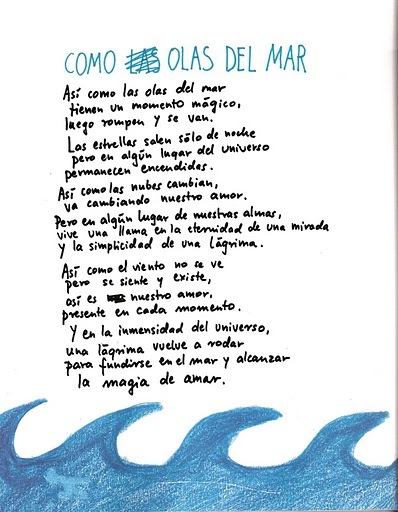 COMO OLAS DEL MAR
Así como las olas del mar
tienen un momento mágico,
luego rompen y se van.
Las estrellas salen sólo de noche
pero en algún lugar del universo
permanecen encendidas.
Así como las nubes cambian,
va cambiando nuestro amor.
Pero en algún lugar de nuestras almas,
vive una llama en la eternidad de una mirada
y la simplicidad de una lágrima.
Así como el viento no se ve
pero se siente y existe,
así es nuestro amor,
presente en cada momento.
Y en la inmensidad del universo,
una lágrima vuelve a rodar
para fundirse en el mar y alcanzar
la magia de amar.